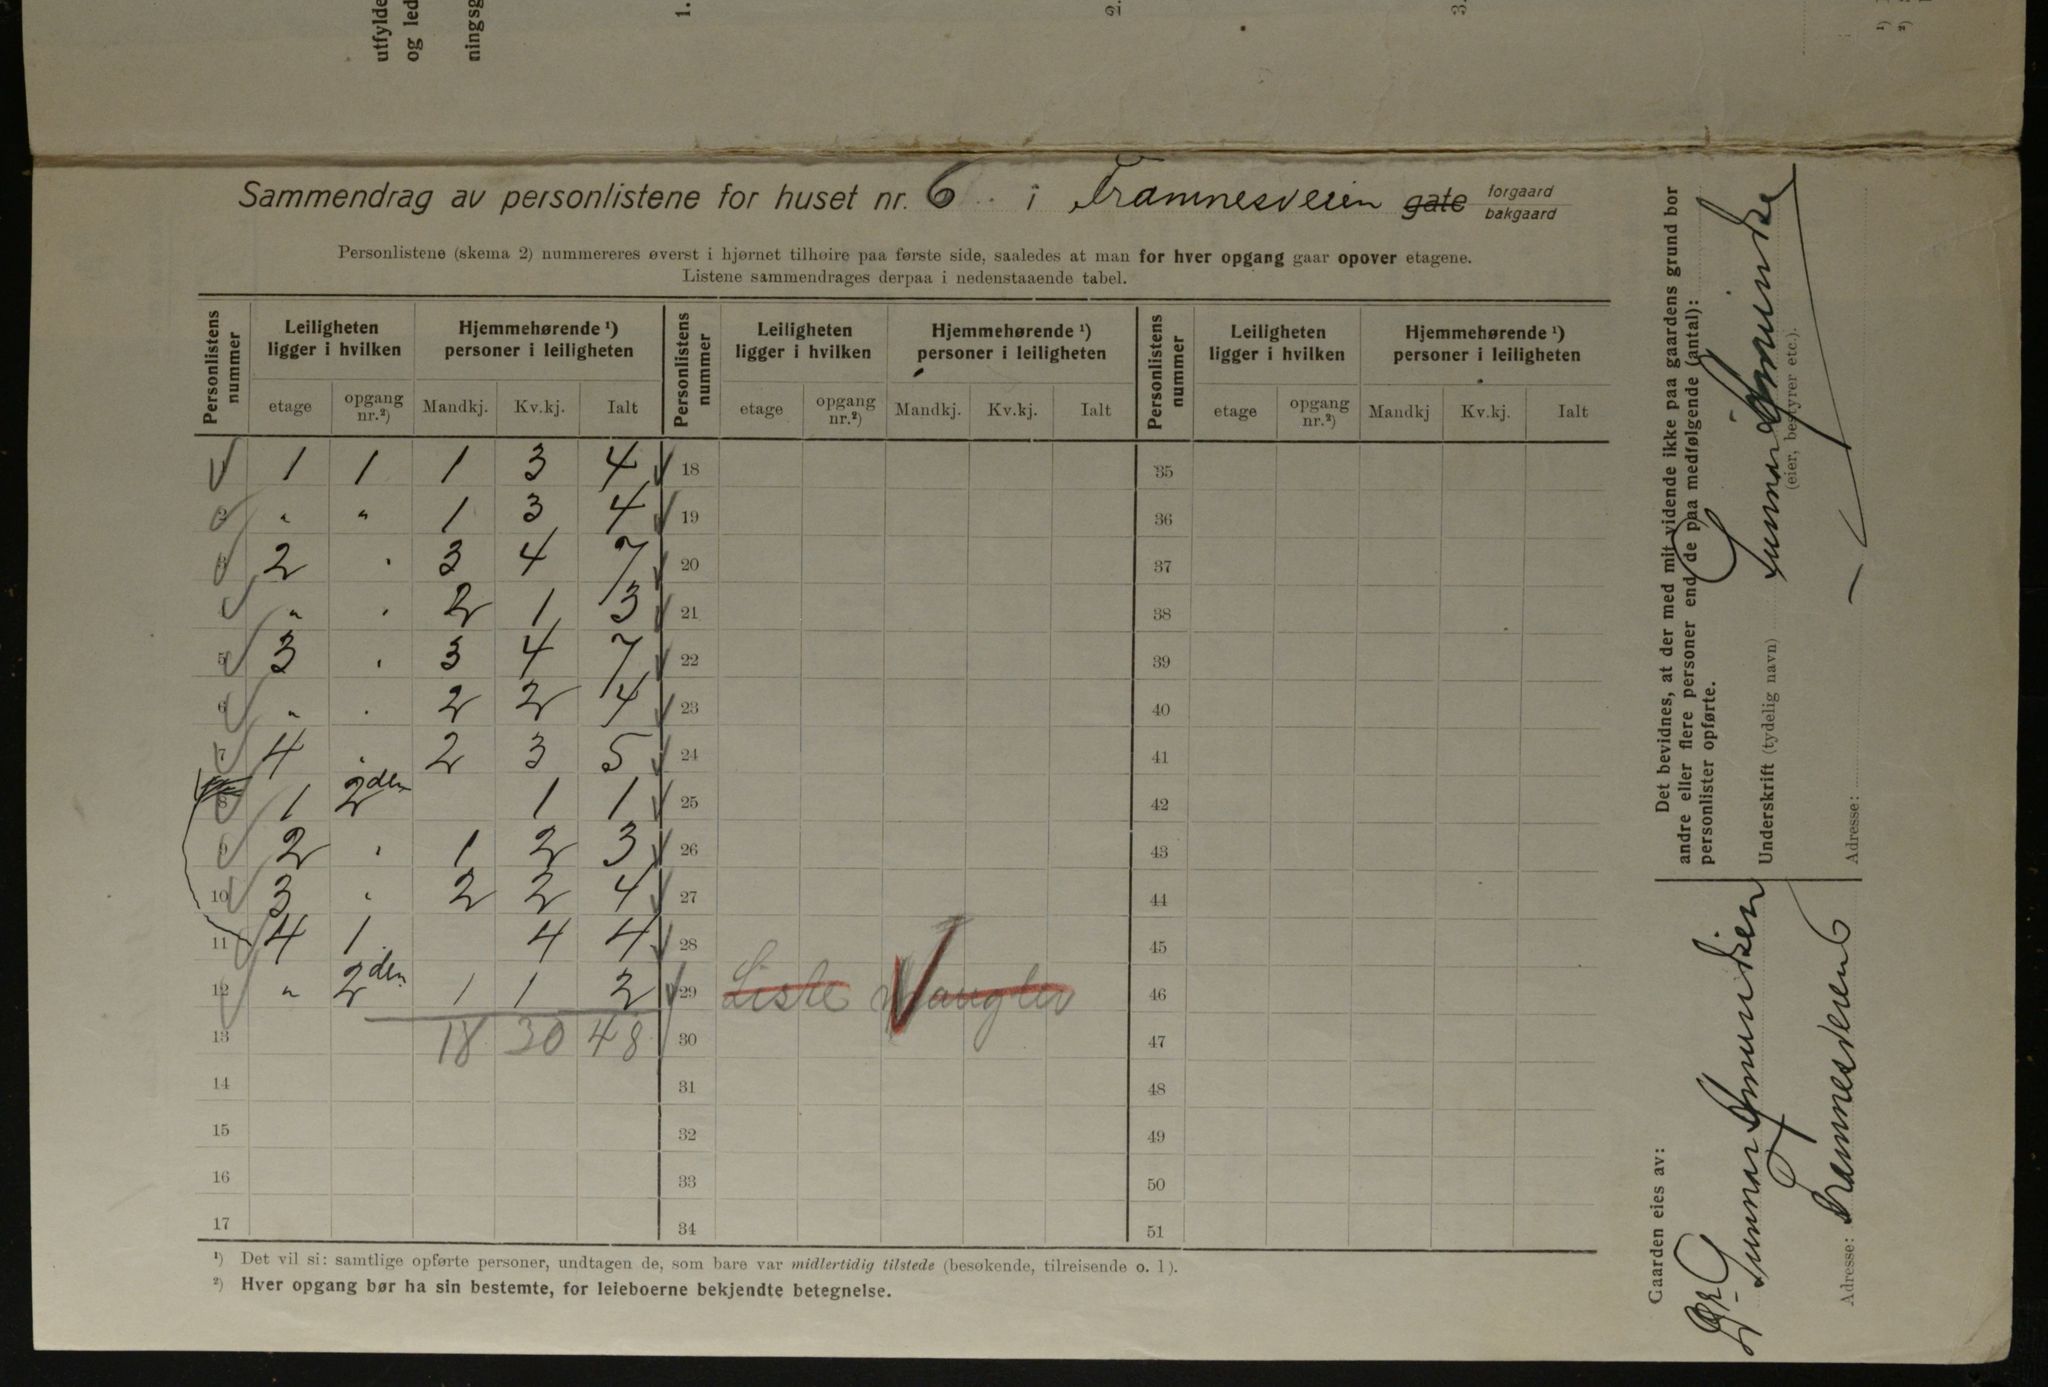 utfylde
og led
ningsg
1.
2.
3.
1)
2)
Sammendrag av personlistene for huset nr. 6 i Framnesveien gate forgaard bakgaard
Personlistene (skema 2) nummereres øverst i hjørnet tilhøire paa første side, saaledes at man for hver opgang gaar opover etagene.
Listene sammendrages derpaa i nedenstaaende tabel.
Personlistens nummer | Leiligheten ligger i hvilken | Hjemmehørende ¹) personer i leiligheten | Personlistens nummer | Leiligheten ligger i hvilken | Hjemmehørende ¹) personer i leiligheten | Personlistens nummer | Leiligheten ligger i hvilken | Hjemmehørende ¹) personer i leiligheten
etage | opgang nr.²) | Mandkj. | Kv.kj. | Ialt | etage | opgang nr.²) | Mandkj. | Kv.kj. | Ialt | etage | opgang nr.²) | Mandkj | Kv.kj. | Ialt
1 1 1 3 4 18 35
2 " " 1 3 4 19 36
3 2 " 3 4 7 20 37
" " 2 1 3 21 38
5 3 " 3 4 7 22 39
6 " " 2 2 4 23 40
7 4 " 2 3 5 24 41
8 1 2den 1 1 25 42
9 2 " 1 2 3 26 43
10 3 " 2 2 4 27 44
11 4 1 4 4 28 45
12 " 2den 1 1 2 29 Liste mangler 46
13 18 30 48 30 47
14 31 48
15 32 49
16 33 50
17 34 51
¹) Det vil si: samtlige opførte personer, undtagen de, som bare var midlertidig tilstede (besøkende, tilreisende o. l).
²) Hver opgang bør ha sin bestemte, for leieboerne bekjendte betegnelse.
Det bevidnes, at der med mit vidende ikke paa gaardens grund bor
andre eller flere personer end de paa medfølgende (antal):
personlister opførte.
Underskrift (tydelig navn) Gunnar
(eier, bestyrer etc.).
Adresse:
Gaarden eies av:
Gunnar
Adresse: Framnesveien 6